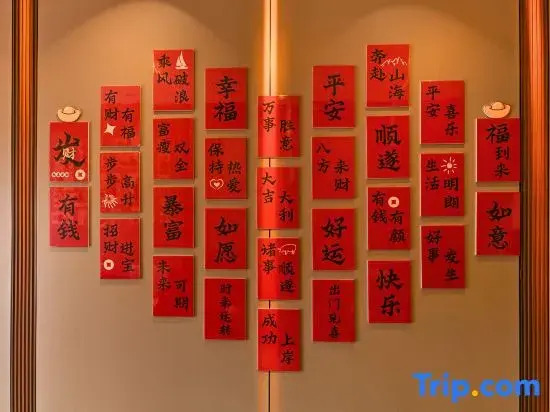 发财
有钱
有财
有福
步步
高升
招财
进宝
乘风
破浪
富瘦
双全
暴富
未来
可期
幸福
保持
热爱
如愿
时来运转
万事
胜意
大吉
大利
诸事
顺遂
成功
上岸
平安
八方
来财
好运
出门见喜
奔赴
山海
顺遂
有钱
有颜
快乐
平安
喜乐
生活
明朗
好事
发生
福到来
如意
Trip.com